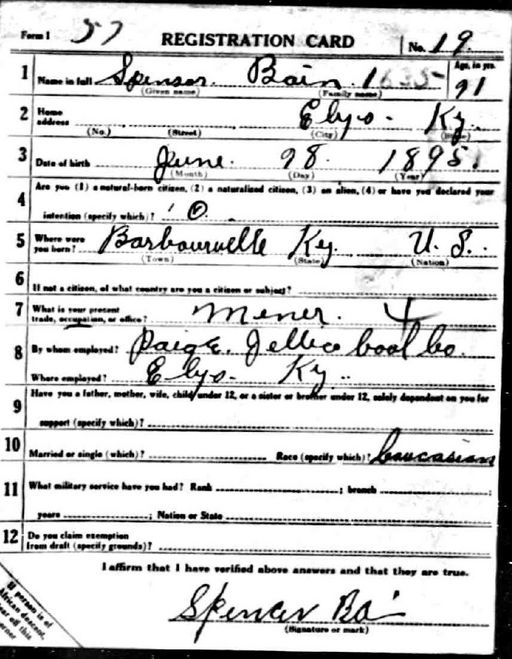 Form 1 57 REGISTRATION CARD No. 19
1 Name in full Spensor. Bain. 1635 Age, in yrs. 21
(Given name) (Family name)
2 Home address Elys. Ky.
(No.) (Street) (City) (State)
3 Date of birth June. 28. 1895.
(Month) (Day) (Year)
4 Are you (1) a natural-born citizen, (2) a naturalized citizen, (3) an alien, (4) or have you declared your
intention (specify which)? 1
5 Where were you born? Barbourvelle Ky. U. S.
(Town) (State) (Nation)
6 If not a citizen, of what country are you a citizen or subject?
7 What is your present trade, occupation, or office? Mener. 4
8 By whom employed? Paige. Jellico Coal Co.
Where employed? Elys. Ky.
9 Have you a father, mother, wife, child under 12, or a sister or brother under 12, solely dependent on you for
support (specify which)?
10 Married or single (which)? Race (specify which)? Caucasian
11 What military service have you had? Rank ; branch ;
years ; Nation or State
12 Do you claim exemption
from draft (specify grounds)?
I affirm that I have verified above answers and that they are true.
Spencer Bai
(Signature or mark)
If person is of
African descent,
tear off this
corner